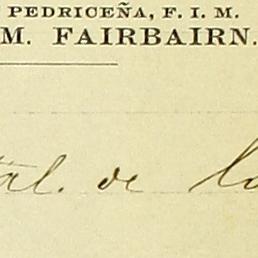 PEDRICEÑA, F. I. M.
M. FAIRBAIRN.
tal. de la